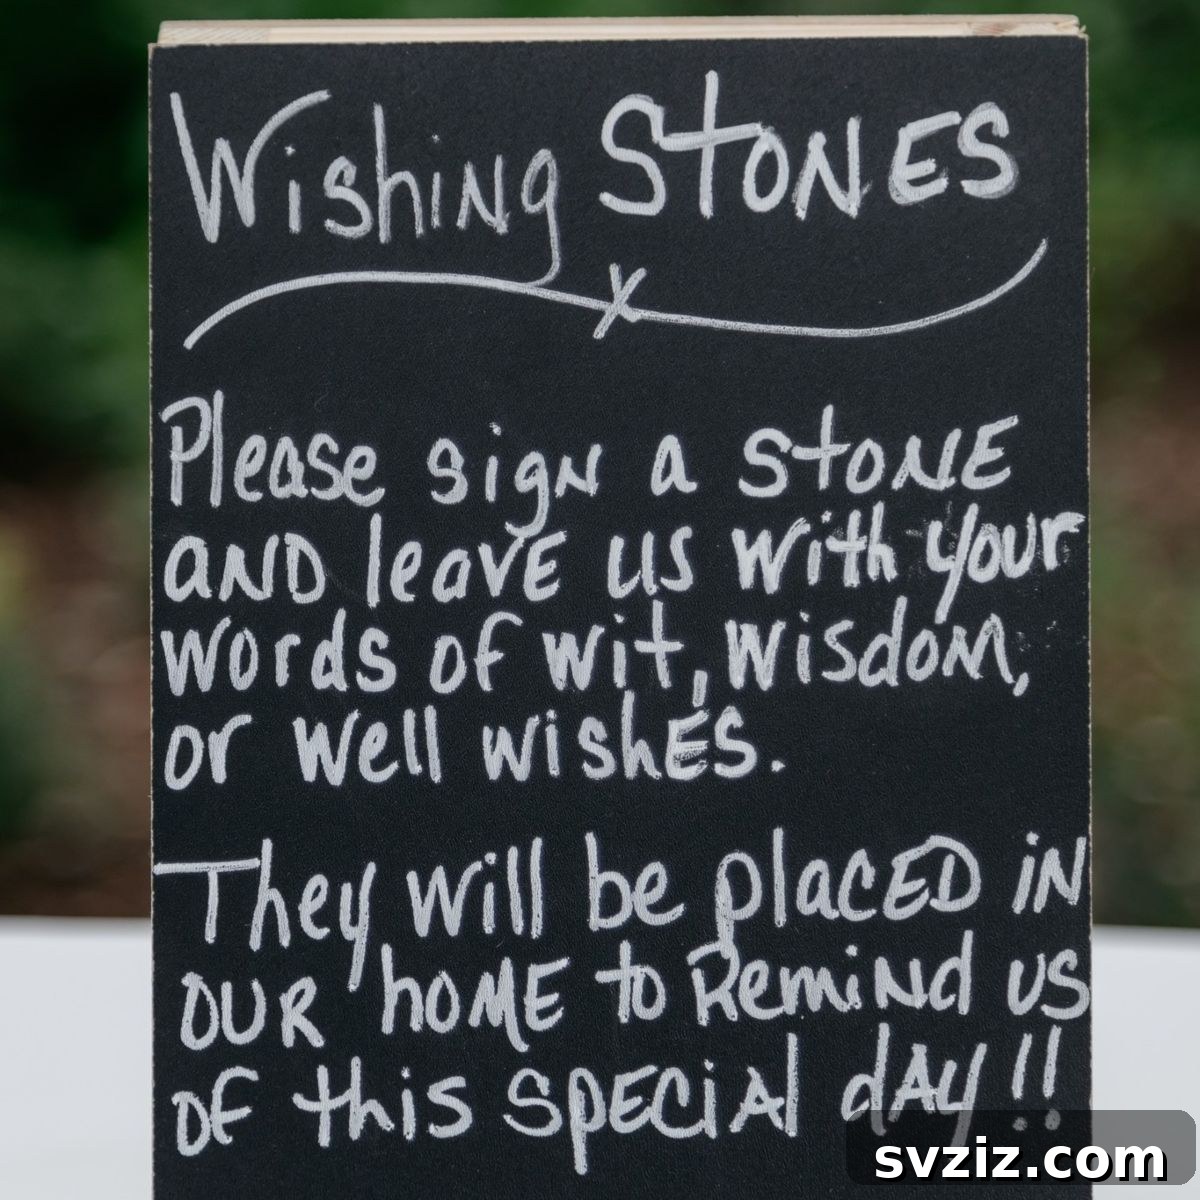 Wishing STONES
Please sign a STONE
AND leave us with your
words of wit, wisdom,
or well wishes.
They will be placed in
OUR home to Remind us
of this special day!!
svziz.com